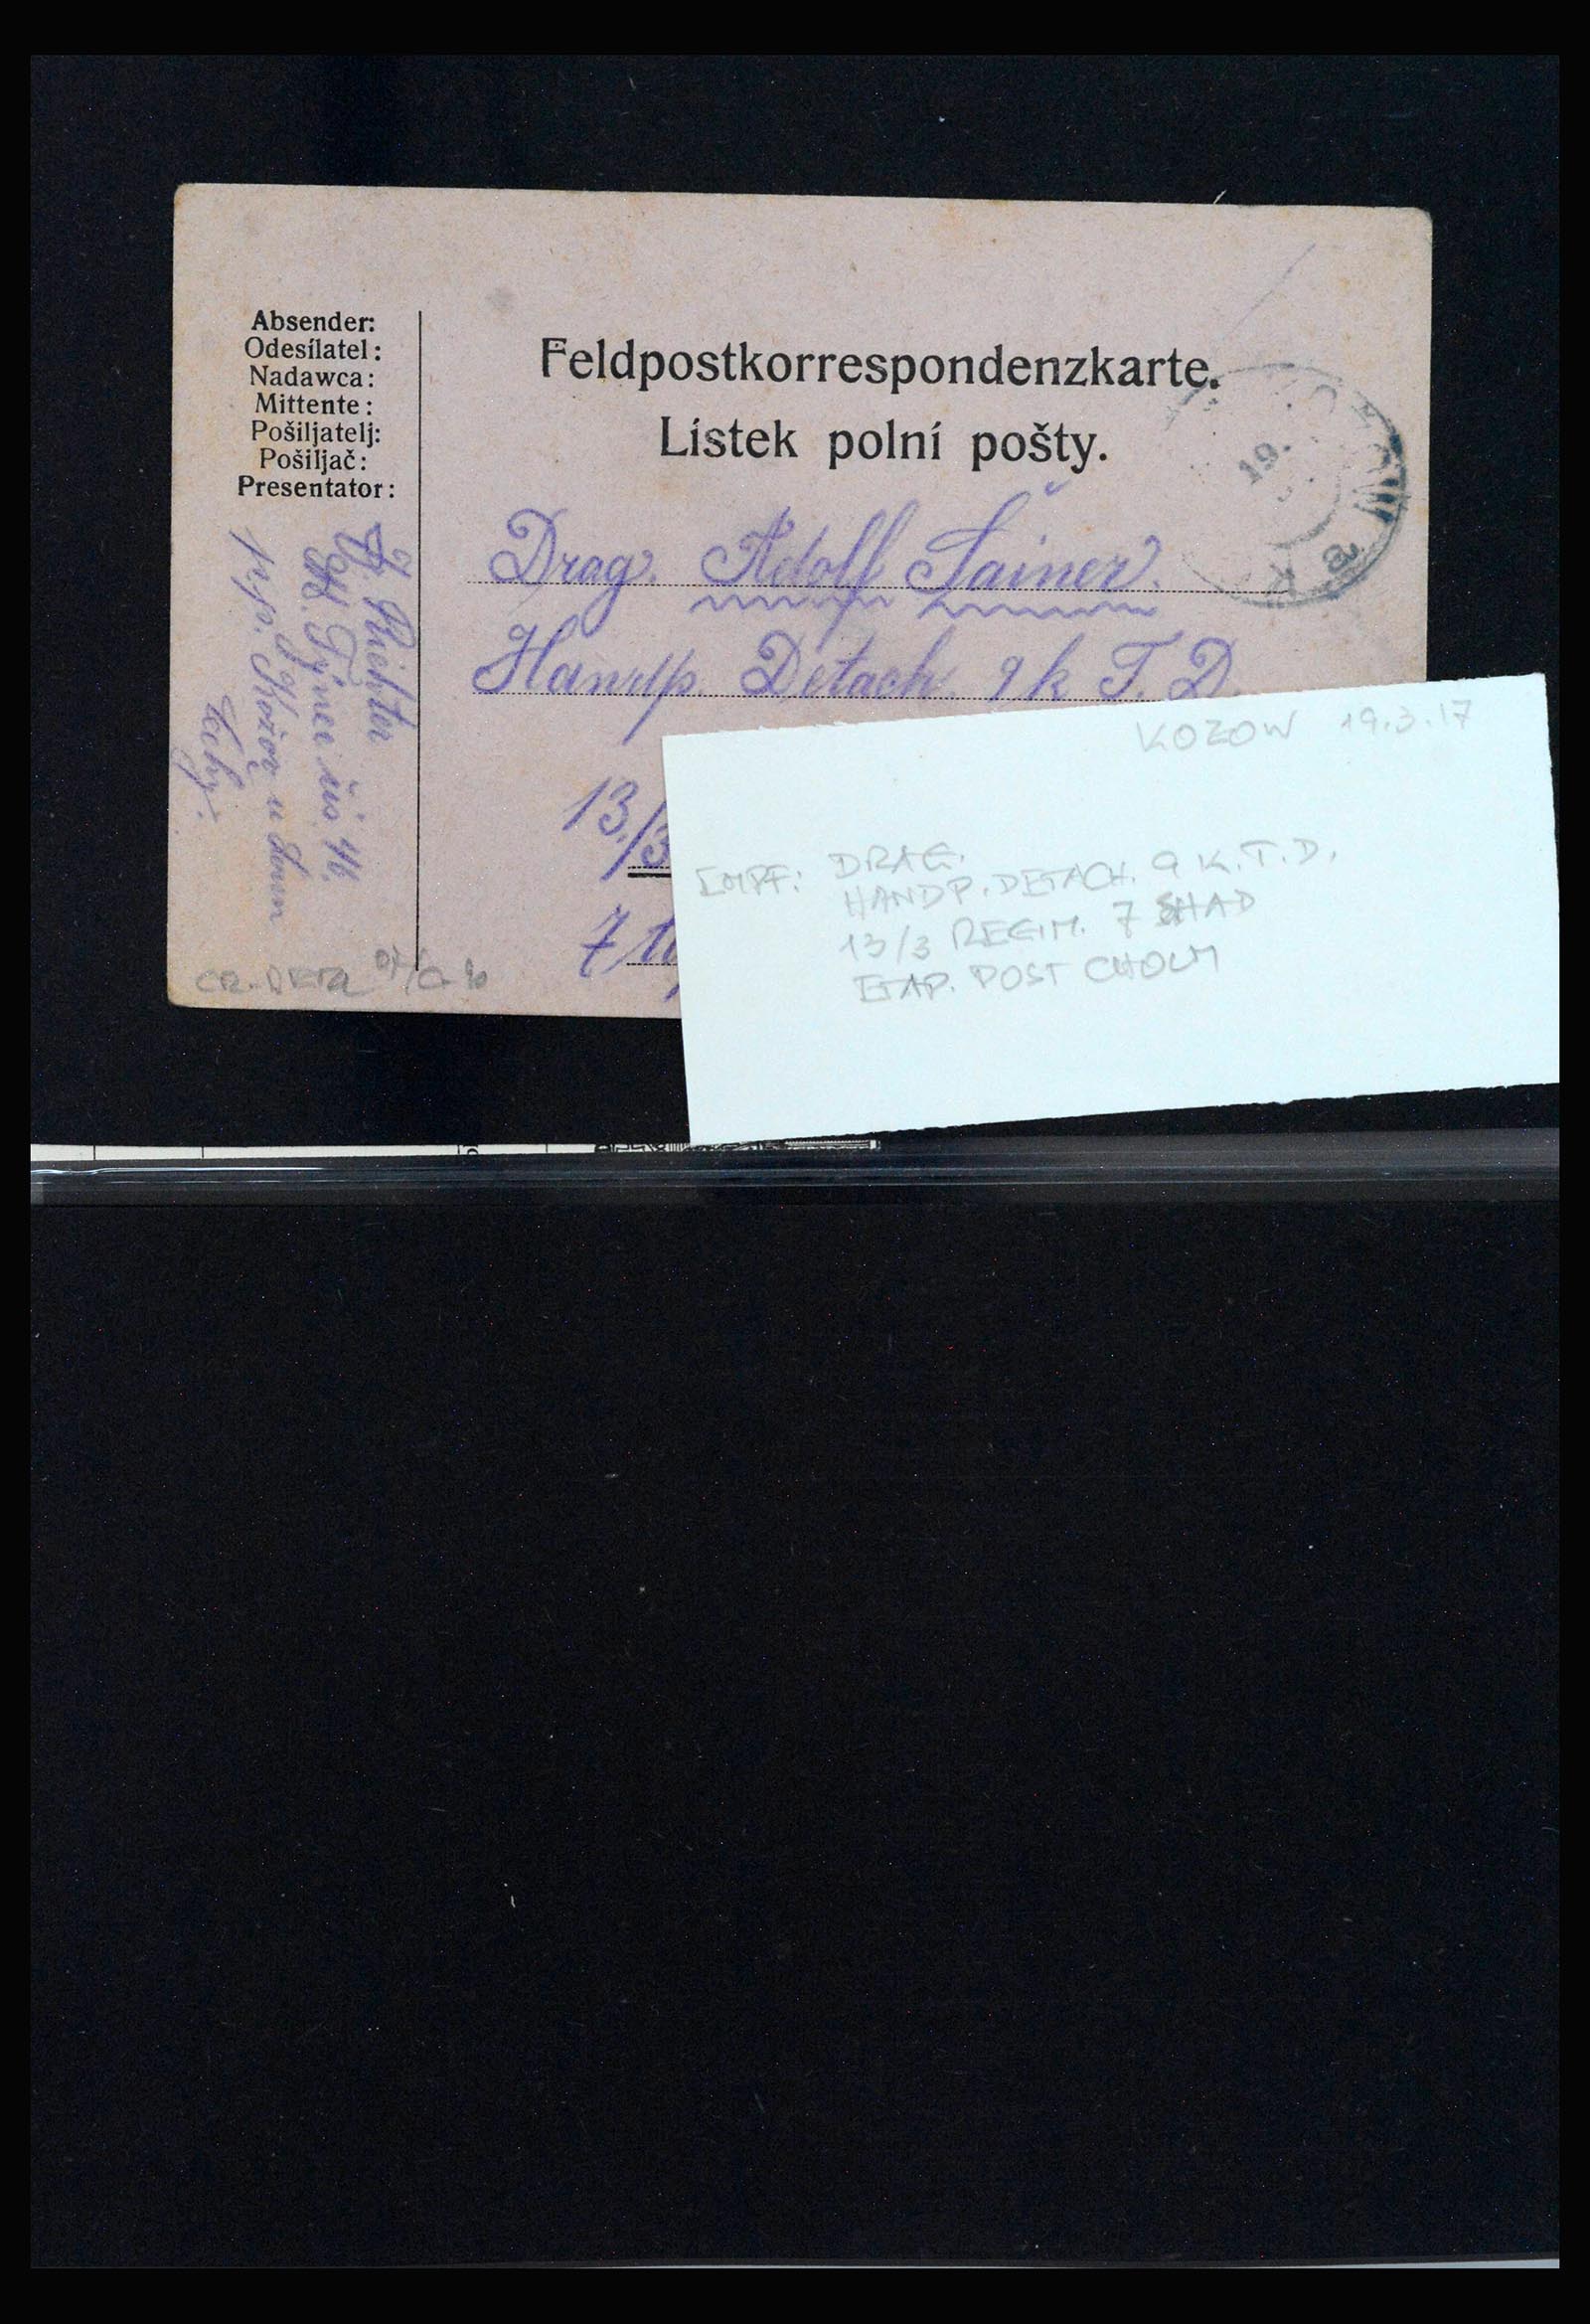 Absender:
Odesílatel:
Nadawca:
Mittente:
Pošiljatelj:
Pošiljač:
Presentator:
J. Richter
Týnec čís. 46.
p.p. Kožov u
Čechy.
Feldpostkorrespondenzkarte.
Lístek polní pošty.
19.
Drag. Adolf Šainer.
Handp. Detach. 9 k T. D.
13./3
7
KOZOW 19.3.17
EMPF: DRAG.
HANDP. DETACH. 9 K.T.D.
13/3 REGIM. 7
ETAP. POST CHOLM